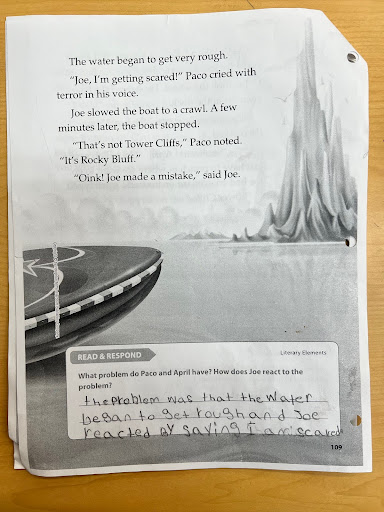 The water began to get very rough.
"Joe, I'm getting scared!" Paco cried with
terror in his voice.
Joe slowed the boat to a crawl. A few
minutes later, the boat stopped.
"That's not Tower Cliffs," Paco noted.
"It's Rocky Bluff."
"Oink! Joe made a mistake," said Joe.
READ & RESPOND
Literary Elements
What problem do Paco and April have? How does Joe react to the
problem?
the problem was that the water
began to get rough and Joe
reacted by saying I am scared
109